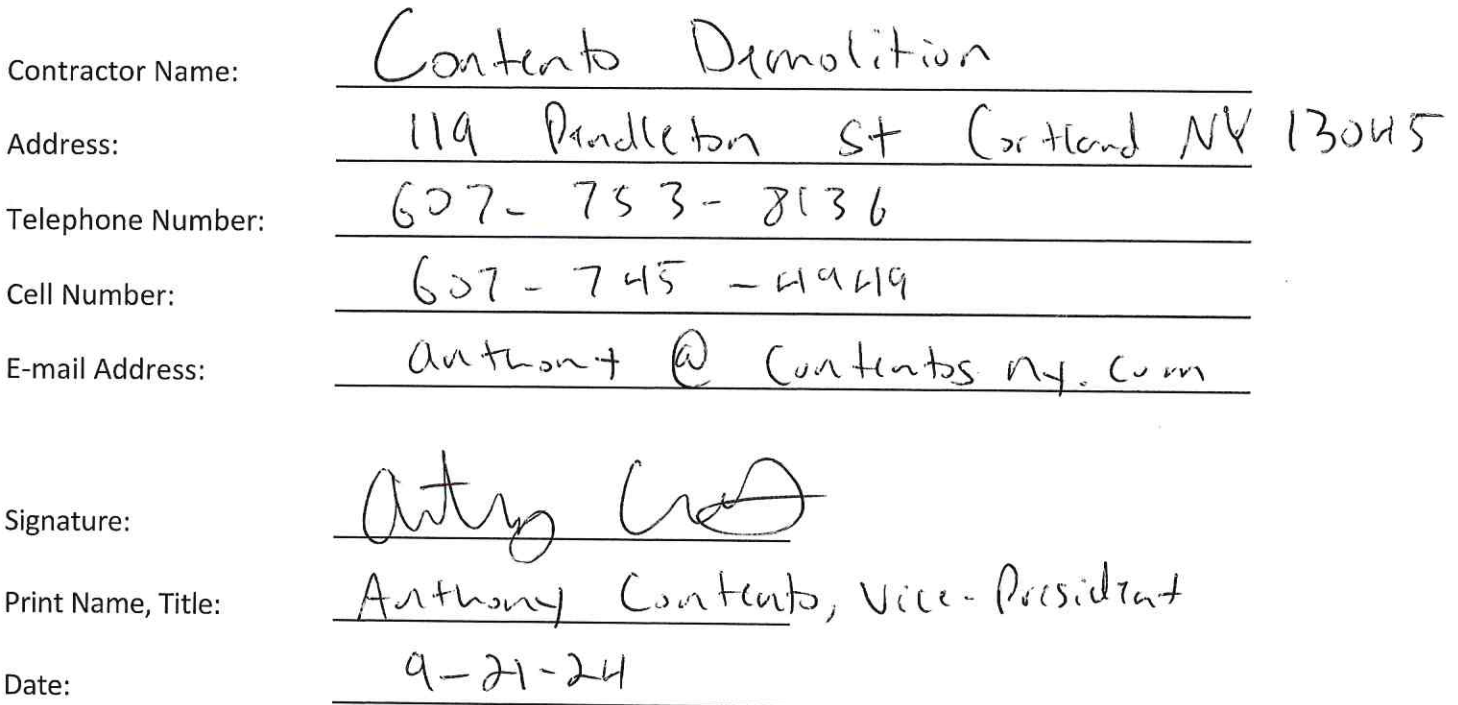 Contractor Name: Contento Demolition
Address: 119 Pendleton St Cortland NY 13045
Telephone Number: 607-753-8136
Cell Number: 607-745-4949
E-mail Address: anthony@contentosny.com
Signature:
Print Name, Title: Anthony Contento, Vice-President
Date: 9-21-24